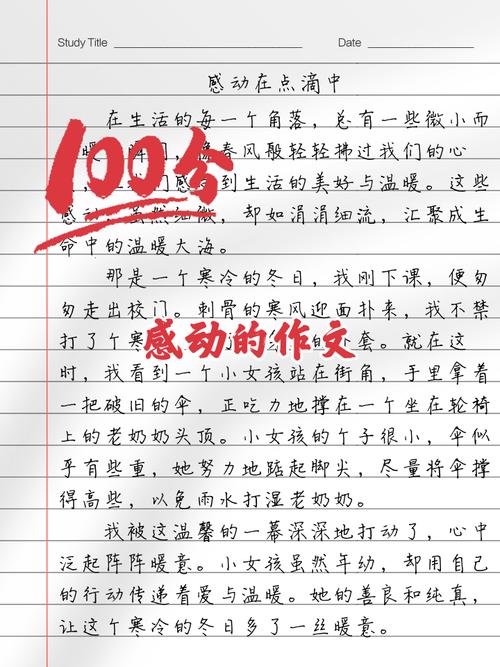 Study Title Date
感动在点滴中
在生活的每一个角落，总有一些微小而
暖 瞬间，像春风般轻轻拂过我们的心
们感 到生活的美好与温暖。这些
感动 虽然细微，却如涓涓细流，汇聚成生
命中的温暖大海。
100分
那是一个寒冷的冬日，我刚下课，便匆
匆走出校门。刺骨的寒风迎面扑来，我不禁
打了个寒 套。就在这
感动的作文
时，我看到一个小女孩站在街角，手里拿着
一把破旧的伞，正吃力地撑在一个坐在轮椅
上的老奶奶头顶。小女孩的个子很小，伞似
乎有些重，她努力地踮起脚尖，尽量将伞撑
得高些，以免雨水打湿老奶奶。
我被这温馨的一幕深深地打动了，心中
泛起阵阵暖意。小女孩虽然年幼，却用自己
的行动传递着爱与温暖。她的善良和纯真，
让这个寒冷的冬日多了一丝暖意。